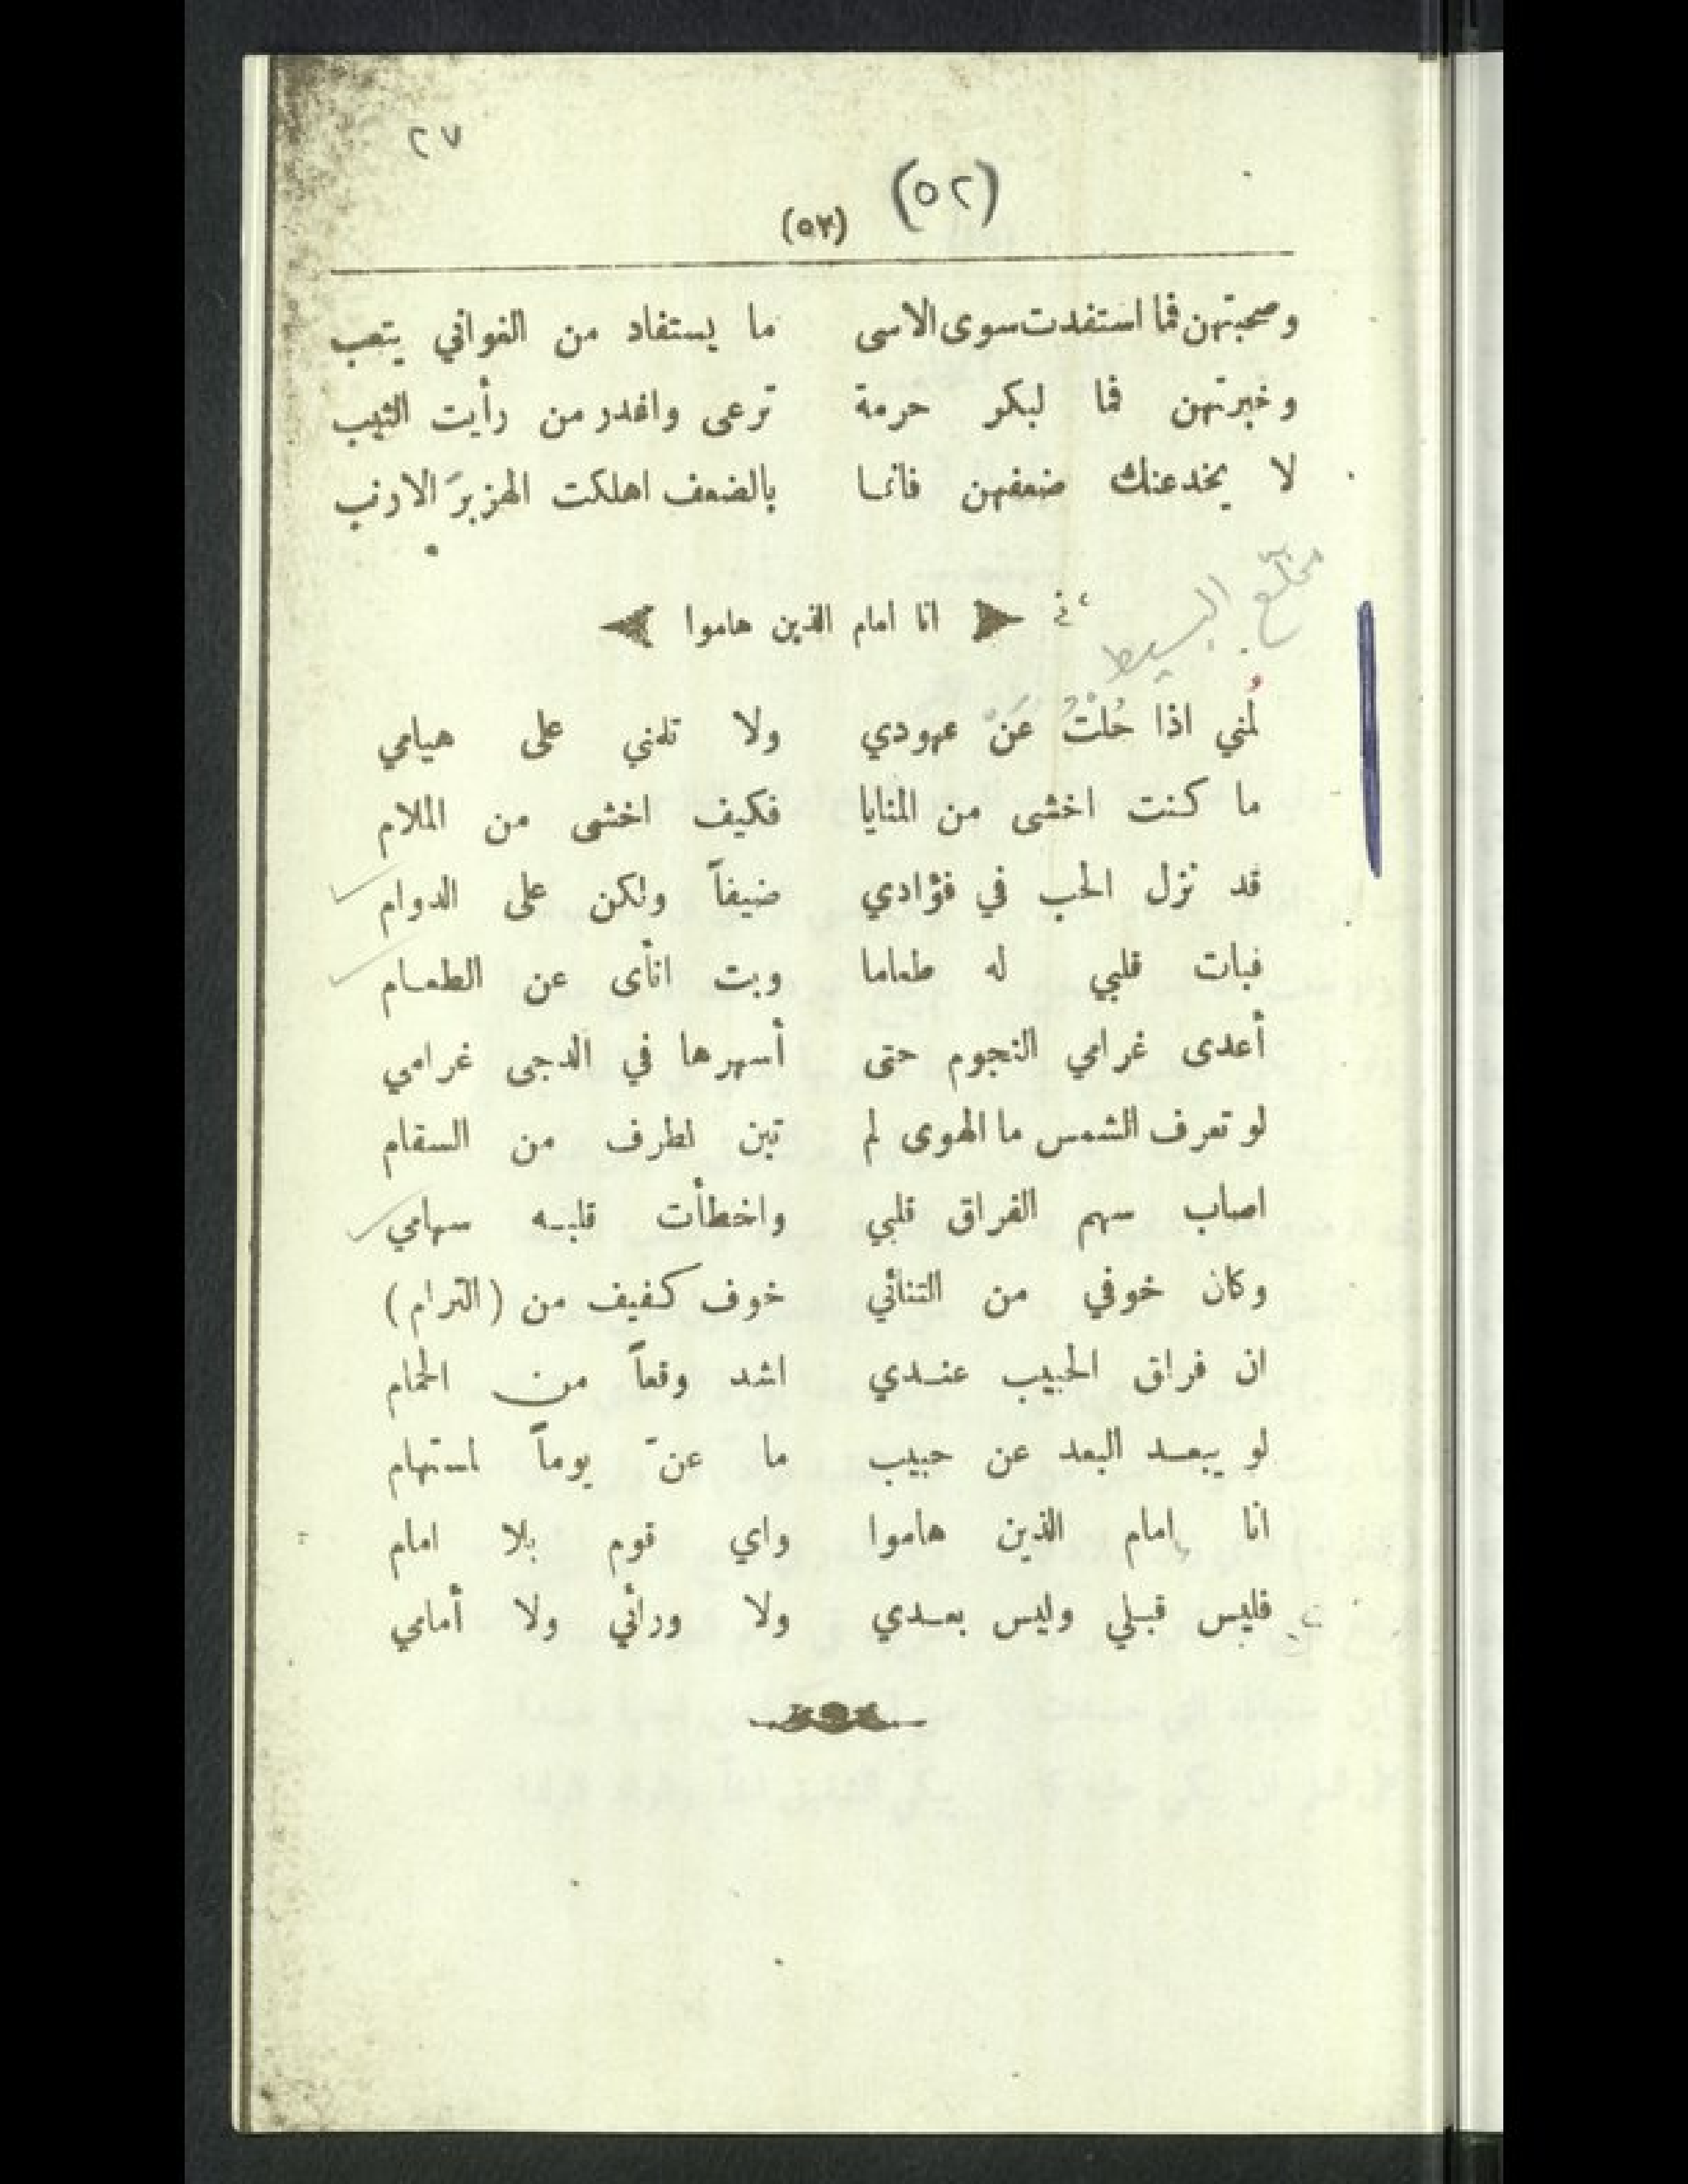 ٢٧
(٥٢)
(٥٢)
وصحبتهن فما استفدت سوى الاسى ما يستفاد من الغواني يتعب
وخبرتهن فما لبكر حرمة ترعى واغدر من رأيت الثيب
لا يخدعنك ضعفهن فانما بالضعف اهلكت الهزبرَ الارنب
مخلّع البسيط
انا امام الذين هاموا
لُمني اذا حُلْتُ عَنْ عهودي ولا تلمني على هيامي
ما كنت اخشى من المنايا فكيف اخشى من الملام
قد نزل الحب في فؤادي ضيفاً ولكن على الدوام
فبات قلبي له طعاما وبت انأى عن الطعام
أعدى غرامي النجوم حتى أسهرها في الدجى غرامي
لو تعرف الشمس ما الهوى لم تبن لطرف من السقام
اصاب سهم الفراق قلبي واخطأت قلبه سهامي
وكان خوفي من التنائي خوف كفيف من (الترام)
ان فراق الحبيب عندي اشد وقعاً من الحمام
لو يبعد البعد عن حبيب ما عنّ يوماً لمستهام
انا امام الذين هاموا واي قوم بلا امام
فليس قبلي وليس بعدي ولا ورائي ولا أمامي